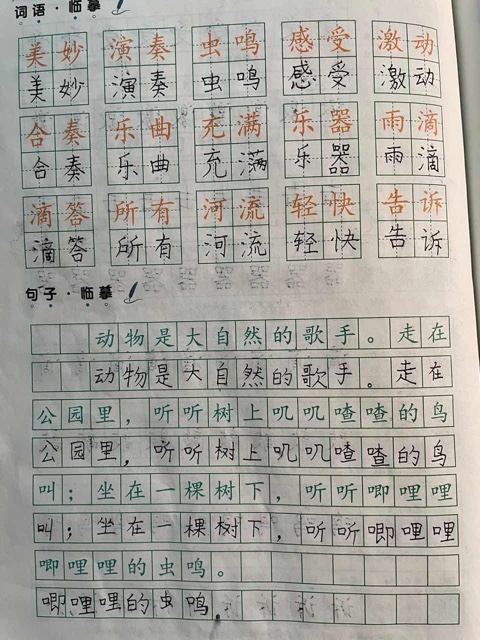 词语·临摹
美妙 演奏 虫鸣 感受 激动
美妙 演奏 虫鸣 感受 激动
合奏 乐曲 充满 乐器 雨滴
合奏 乐曲 充满 乐器 雨滴
滴答 所有 河流 轻快 告诉
滴答 所有 河流 轻快 告诉
句子·临摹
动物是大自然的歌手。走在
动物是大自然的歌手。走在
公园里，听听树上叽叽喳喳的鸟
公园里，听听树上叽叽喳喳的鸟
叫；坐在一棵树下，听听唧哩哩
叫；坐在一棵树下，听听唧哩哩
唧哩哩的虫鸣。
唧哩哩的虫鸣.